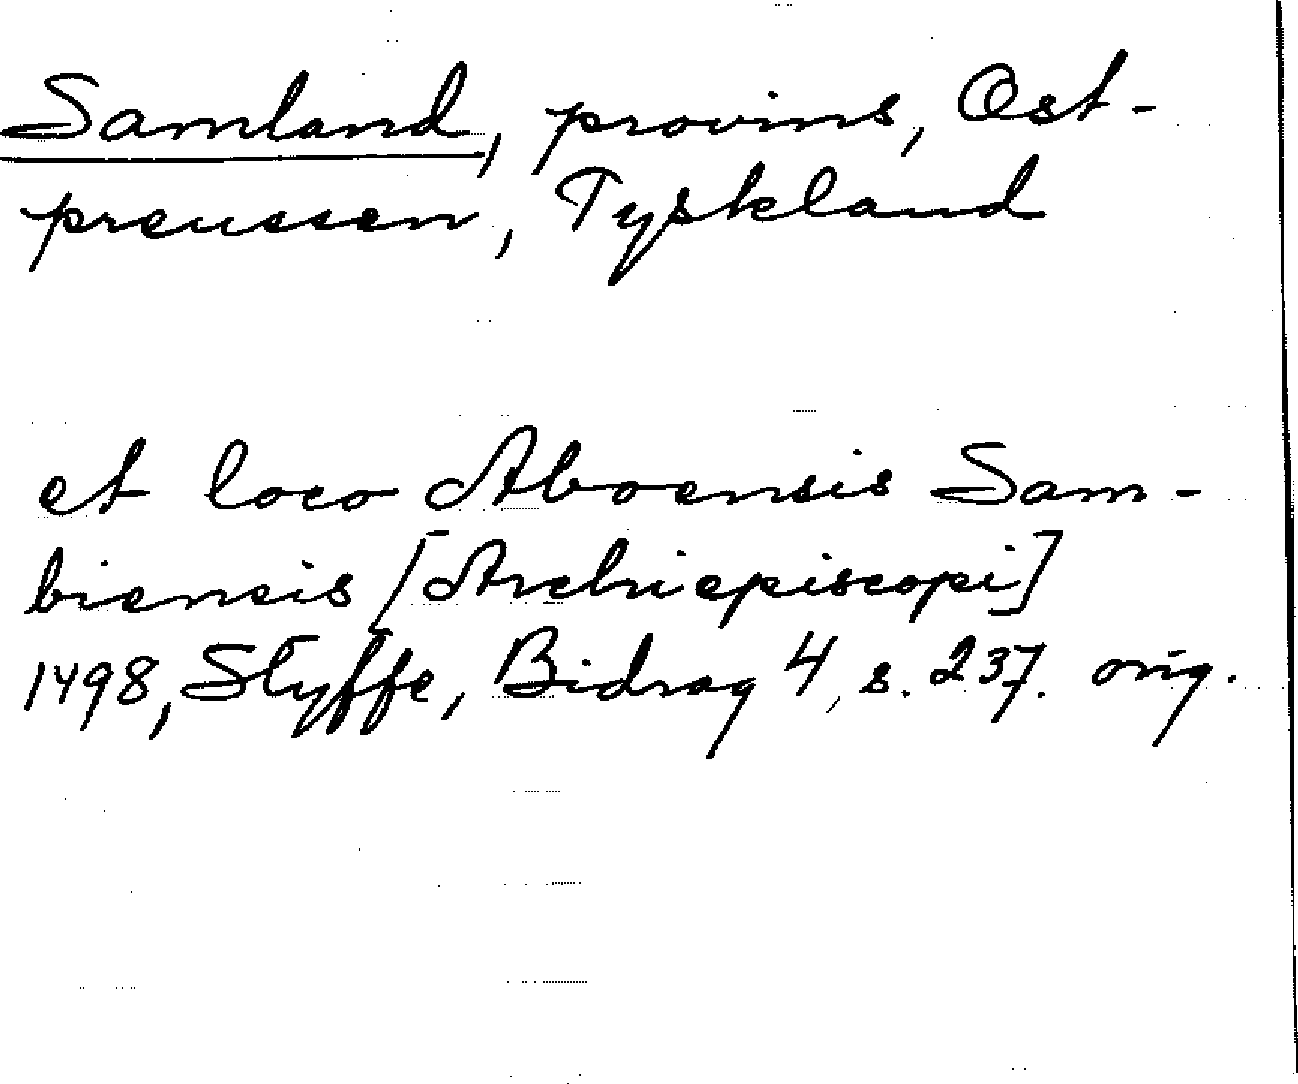 Samland, provins, Ost-
preussen, Tyskland
et loco Aboensis Sam-
biensis [Archiepiscopi]
1498, Styffe, Bidrag 4, s. 237. orig.